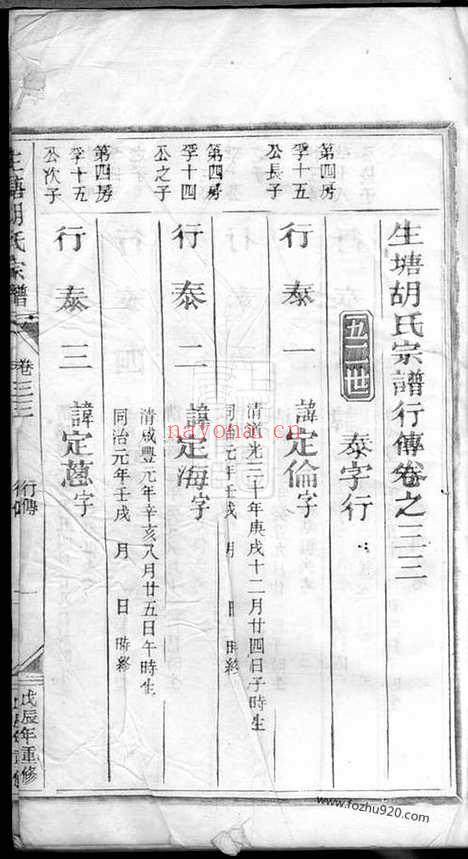 生塘胡氏宗譜行傳卷之三三
五三世
泰字行
第四房
季十五
公長子
行泰一
諱定倫字
清道光三十年庚戌十二月廿四日子時生
同治元年壬戌 月 日 時終
第四房
季十四
公之子
行泰二
諱定海字
清咸豐元年辛亥八月廿五日午時生
同治元年壬戌 月 日 時終
第四房
季十五
公次子
行泰三
諱定蔥字
生塘胡氏宗譜
卷三三
行傳
一
戊辰年重修
nayona.cn
www.fozhu920.com